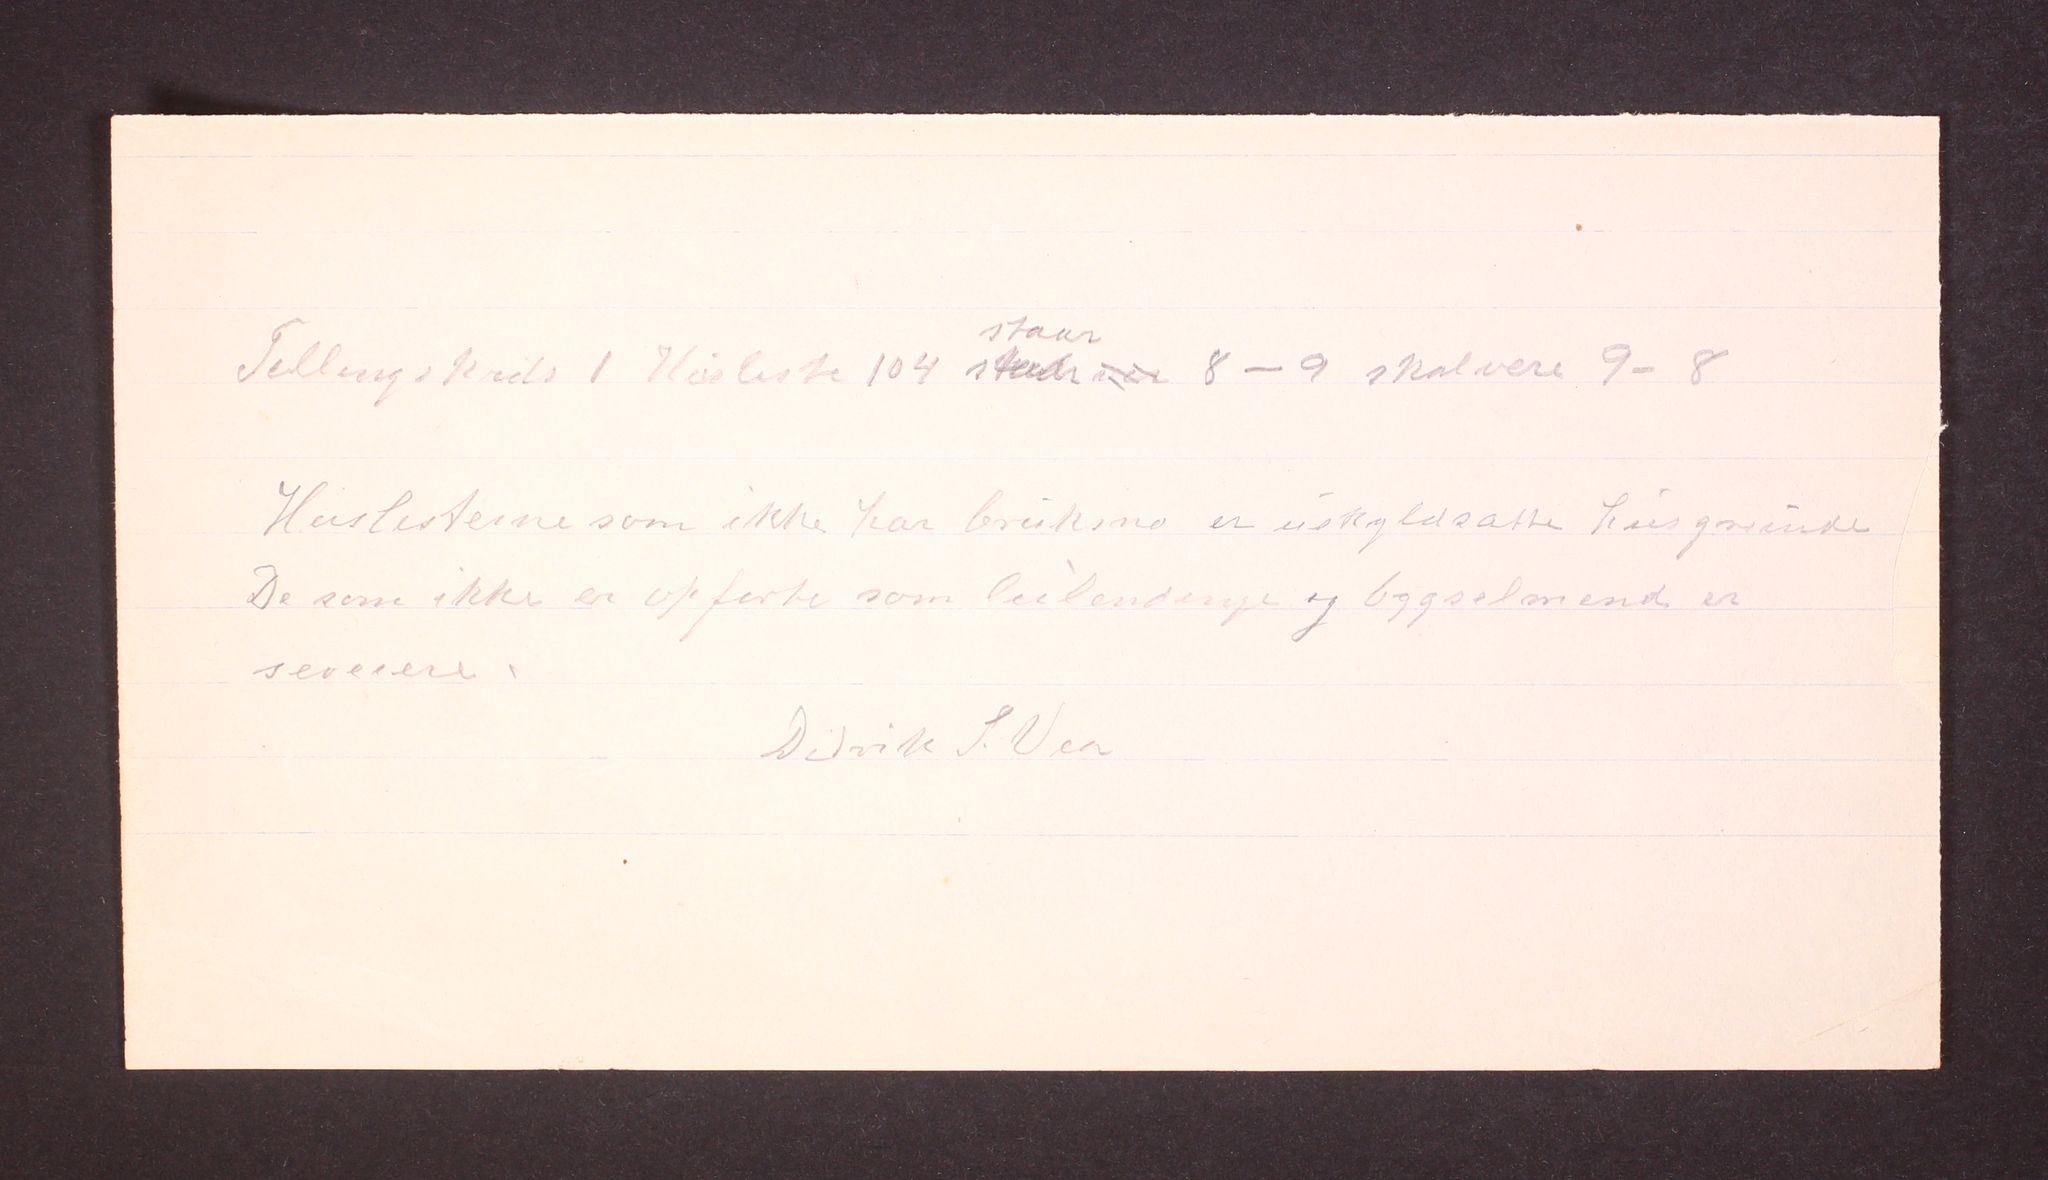 staar
Tellingskreds 1 Husliste 104 8 – 9 skal vere 9 – 8
Huslisterne som ikke har bruksno er uskyldsatte husgrunde
De som ikke er opførte som leilendinge og bygselmend er
seveiere.
Didrik S. Vea